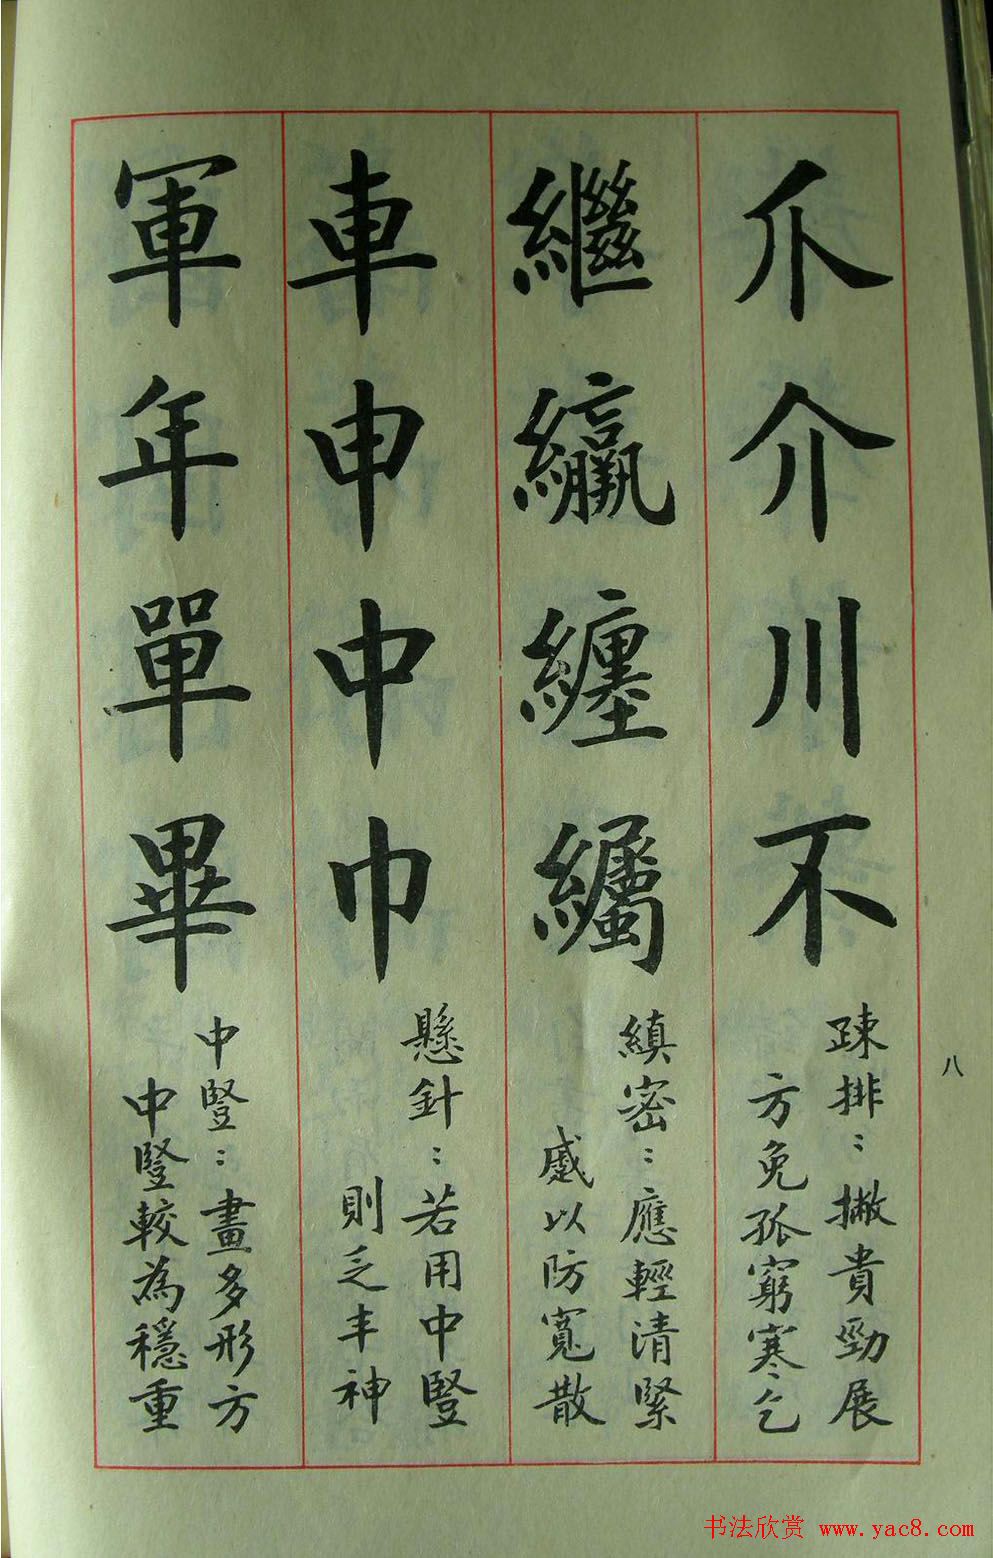 八
爪介川不
疎排：撇貴勁展
方免孤窮寒乞
繼 纏
縝密：應輕清緊
戚以防寬散
車申中巾
懸針：若用中豎
則乏丰神
軍年單畢
中豎：畫多形方
中豎較為穩重
书法欣赏 www.yac8.com